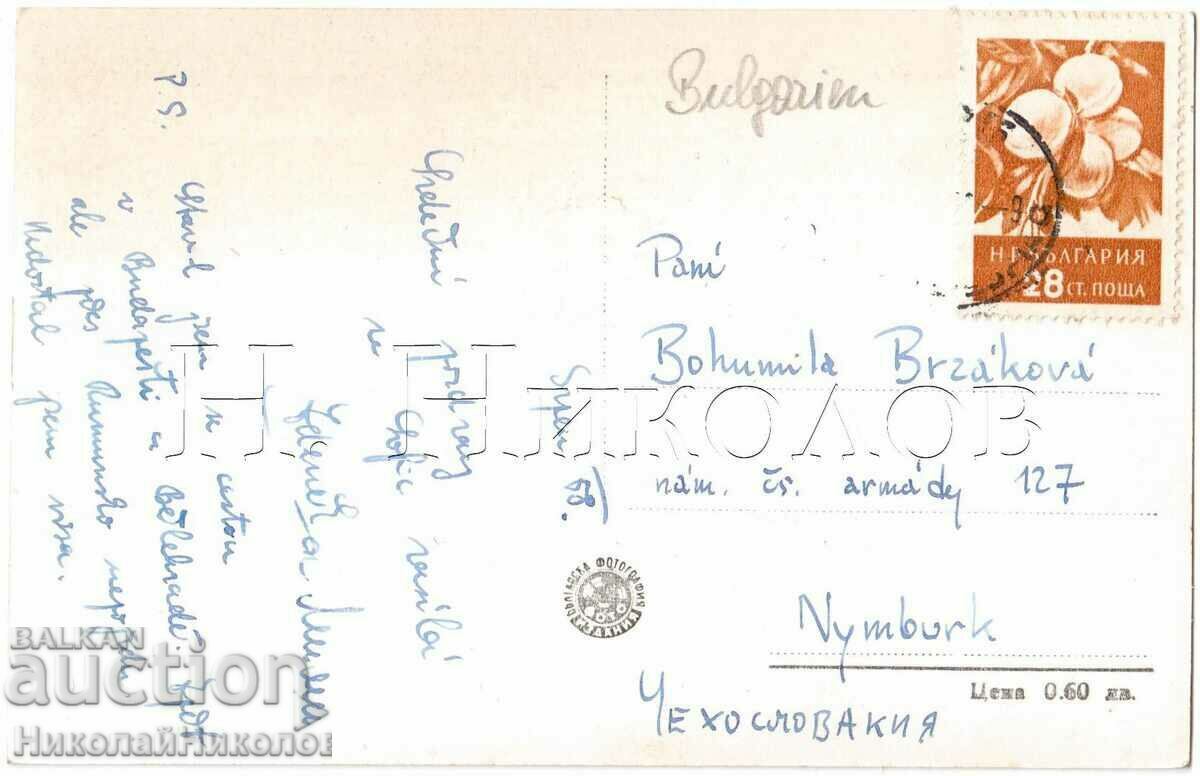 Bulgarien
НР БЪЛГАРИЯ
28 СТ. ПОЩА
Paní
Bohumila Brzáková
nám. čs. armády 127
Nymburk
ЧЕХОСЛОВАКИЯ
Цена 0.60 лв.
БЪЛГАРСКА ФОТОГРАФИЯ
Srpen 58.
Srdečné pozdravy
ze Sofie zasílá
P.S.
jsem
v Budapešti a Bělehradě. Zpět
ale přes Rumunsko
Nedostal jsem visa.
Н. НИКОЛОВ
BALKAN
auction
НиколайНиколов